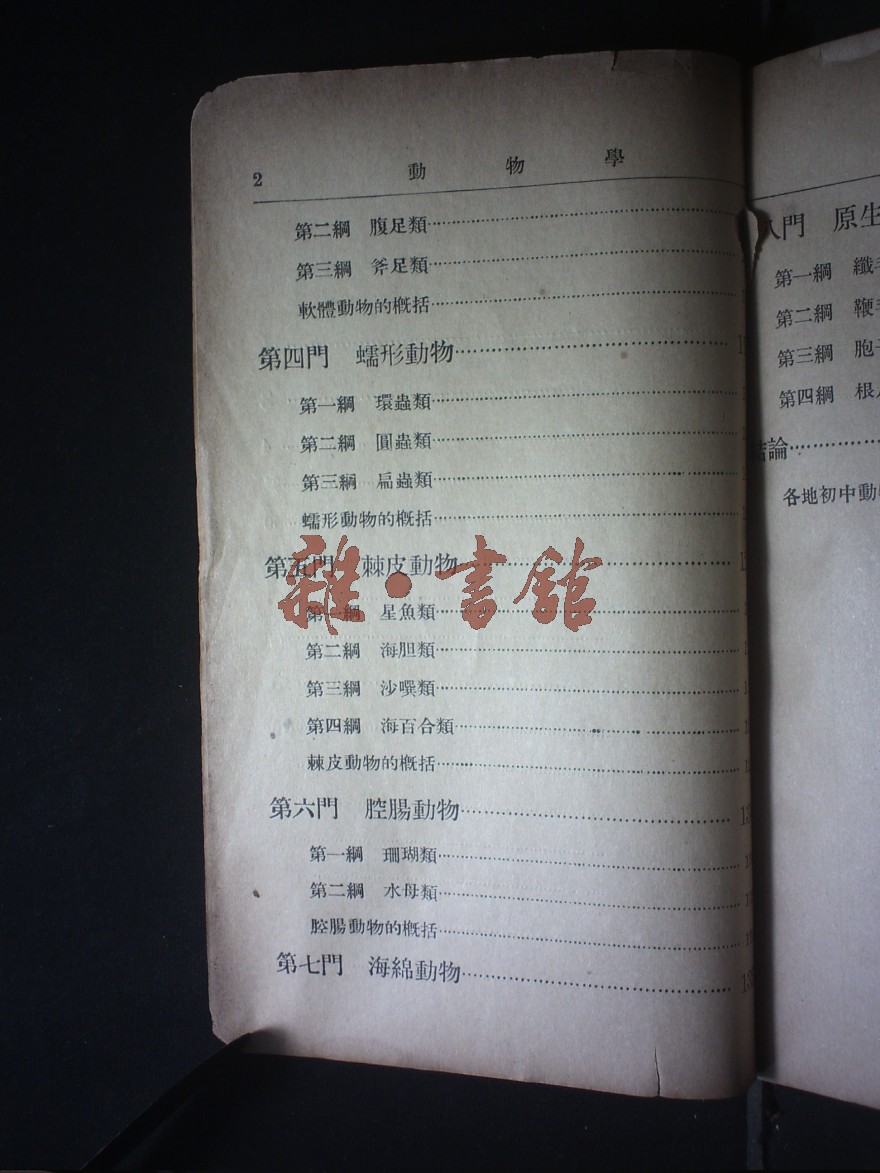 2 動物學
第二綱 腹足類
第三綱 斧足類
軟體動物的概括
第四門 蠕形動物
第一綱 環蟲類
第二綱 圓蟲類
第三綱 扁蟲類
蠕形動物的概括
第五門 棘皮動物
第一綱 星魚類
第二綱 海胆類
第三綱 沙噀類
第四綱 海百合類
棘皮動物的概括
第六門 腔腸動物
第一綱 珊瑚類
第二綱 水母類
腔腸動物的概括
第七門 海綿動物
雜·書館
門 原生
第一綱 纖
第二綱 鞭
第三綱 胞
第四綱 根
論
各地初中動